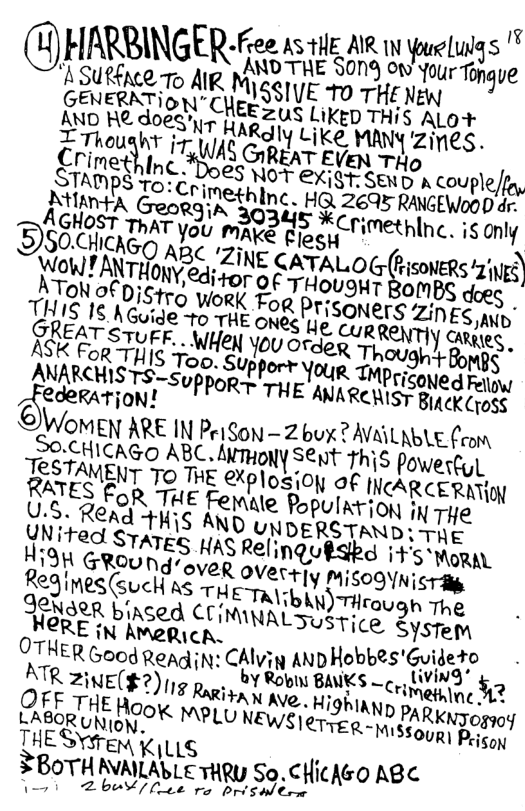 18
④ HARBINGER - Free AS tHE AIR IN YOUR LUNGS
AND THE SONG ON YOUR TONGUE
"A SURFACE TO AIR MISSIVE TO THE NEW
GENERATION" CHEEZUS LIKED THIS ALOT
AND HE DOES'NT HARDLY LIKE MANY 'ZINES.
I THOUGHT IT WAS GREAT EVEN THO
CrimethInc. *DOES NOT EXIST. SEND A COUPLE/few
STAMPS TO: CrimethInc. HQ 2695 RANGEWOOD dr.
AtlantA GEORGIA 30345 *CrimethInc. is only
A GHOST THAT YOU MAKE flesh
⑤ SO. CHICAGO ABC 'ZINE CATALOG (PRISONERS 'ZINES)
WOW! ANTHONY, editor OF THOUGHT BOMBS does
A TON of DISTRO WORK FOR PRISONERS ZINES, AND
THIS IS A GUIDE TO THE ONES HE CURRENTLY CARRIES.
GREAT STUFF... WHEN YOU ORDER THOUGHT BOMBS
ASK FOR THIS TOO. SUPPORT YOUR IMPRISONED FELLOW
ANARCHISTS-SUPPORT THE ANARCHIST BLACK CROSS
Federation!
⑥ WOMEN ARE IN PRISON - 2 bux? AVAILABLE from
SO. CHICAGO ABC. ANTHONY SENT this POWERFUL
TESTAMENT TO THE explosion OF INCARCERATION
RATES FOR THE Female POPULATION IN THE
U.S. READ tHIS AND UNDERSTAND: THE
UNITED STATES HAS Relinquished it's 'MORAL
HIGH GROUND' over overtly MISOGYNIST
Regimes (SUCH AS THE TALIBAN) THROUGH THE
gENDER BIASED CRIMINAL JUSTICE SYSTEM
HERE IN AMERICA.
OTHER GOOD READIN: CALVIN AND Hobbes' Guide to
living'
by ROBIN BANKS - CrimethInc. $1?
ATR ZINE ($?) 118 RARITAN AVE. HIGHLAND PARK NJ 08904
OFF THE HOOK MPLU NEWSLETTER - MISSOURI PRISON
LABOR UNION.
THE SYSTEM KILLS
BOTH AVAILABLE THRU SO. CHICAGO ABC
2 bux/free to prisoners